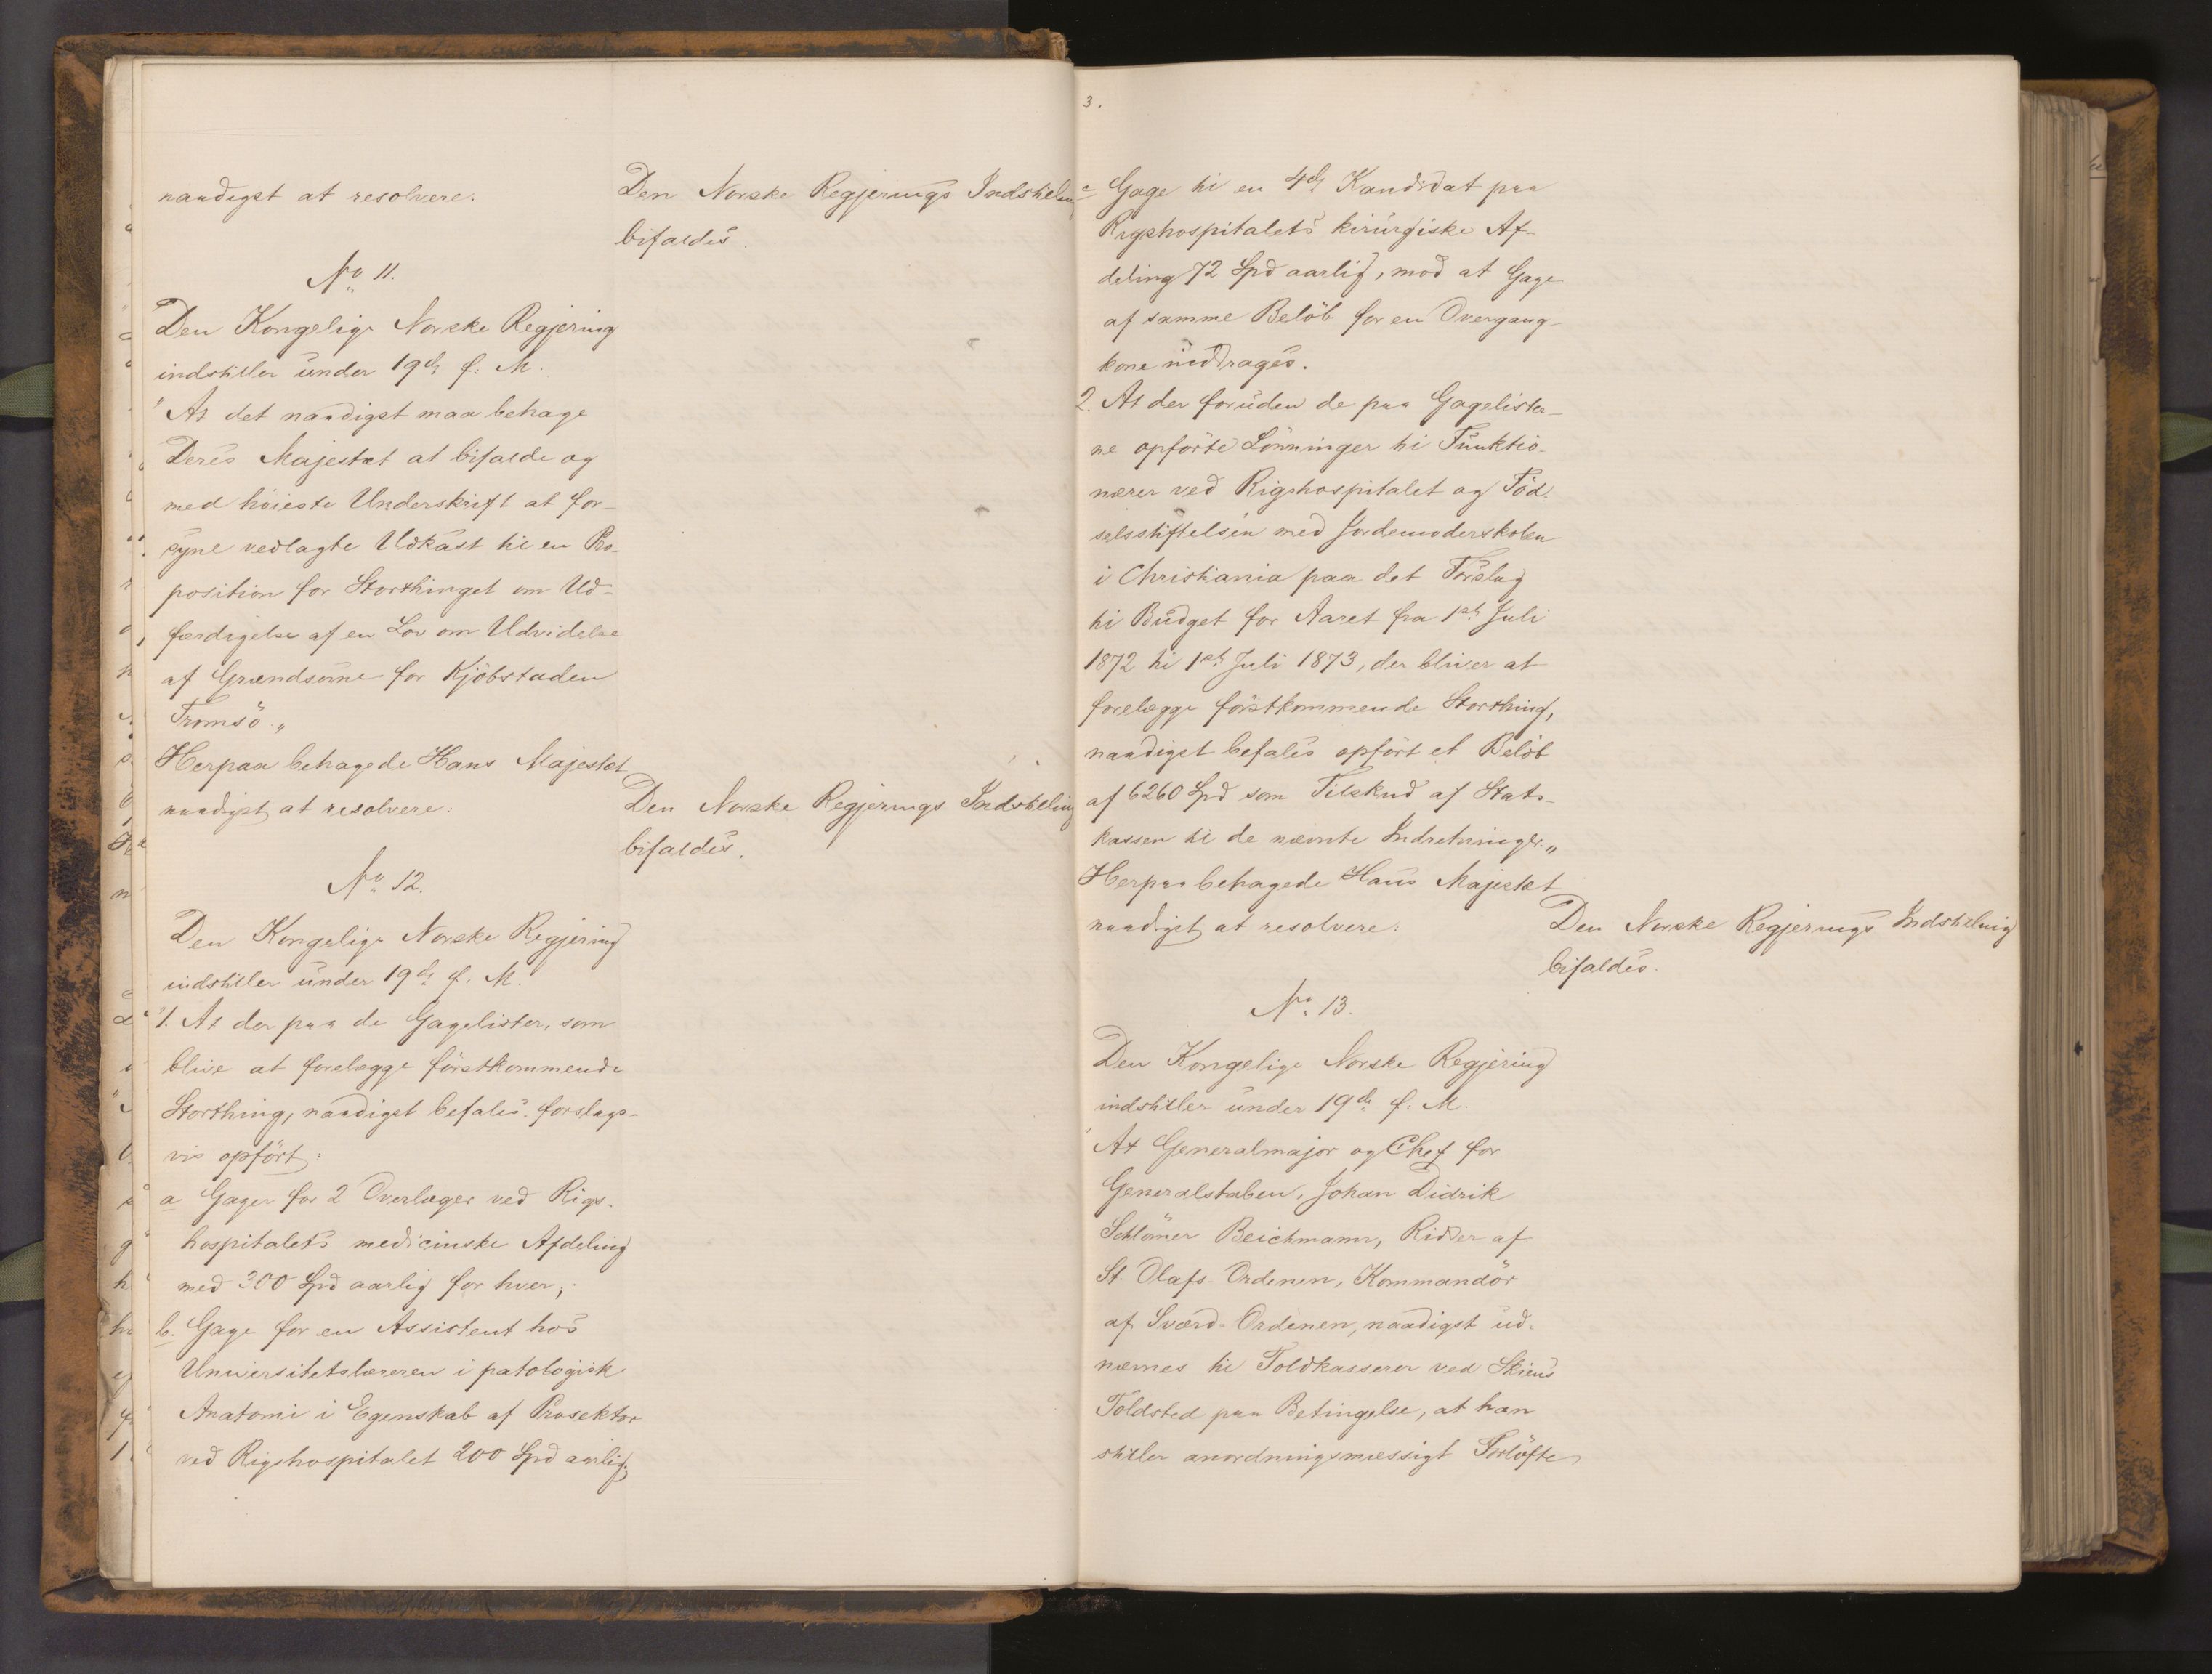 naadigst at resolvere:
Den Norske Regjerings Indstilling
bifaldes.
No 11.
Den Kongelige Norske Regjering
indstiller under 19de f. M.
"At det naadigst maa behage
Deres Majestæt at bifalde og
med höieste Underskrift at for-
syne vedlagte Udkast til en Pro-
position for Storthinget om Ud-
færdigelse af en Lov om Udvidelse
af Grændserne for Kjöbstaden
Tromsö."
Herpaa behagede Hans Majestæt
naadigst at resolvere:
Den Norske Regjerings Indstilling
bifaldes.
No 12.
Den Kongelige Norske Regjering
indstiller under 19de f. M.
"1. At der paa de Gagelister, som
blive at forelægge förstkommende
Storthing, naadigst befales forslags-
vis opfört:
a Gager for 2 Overlæger ved Rigs-
hospitalets medicinske Afdeling
med 300 Spd aarlig for hver;
b. Gage for en Assistent hos
Universitetslæreren i patologisk
Anatomi i Egenskab af Prosektor
ved Rigshospitalet 200 Spd aarlig;
3.
c Gage til en 4de Kandidat paa
Rigshospitalets kirurgiske Af-
deling 72 Spd aarlig, mod at Gage
af samme Belöb for en Overgang-
kone inddrages.
2. At der foruden de paa Gagelister-
ne opförte Lönninger til Funktio-
nærer ved Rigshospitalet og Föd-
selsstiftelsen med Jordemoderskolen
i Christiania paa det Forslag
til Budget for Aaret fra 1ste Juli
1872 til 1ste Juli 1873, der bliver at
forelægge förstkommende Storthing,
naadigst befales opfört et Belöb
af 6260 Spd som Tilskud af Stats-
kassen til de nævnte Indretninger."
Herpaa behagede Hans Majestæt
naadigst at resolvere:
Den Norske Regjerings Indstilling
bifaldes.
No 13.
Den Kongelige Norske Regjering
indstiller under 19de f. M.
"At Generalmajor og Chef for
Generalstaben, Johan Didrik
Schlömer Beichmann, Ridder af
St. Olafs-Ordenen, Kommandör
af Sværd-Ordenen, naadigst ud-
nævnes til Toldkasserer ved Skiens
Toldsted paa Betingelse, at han
stiller anordningsmæssigt Forlöfte